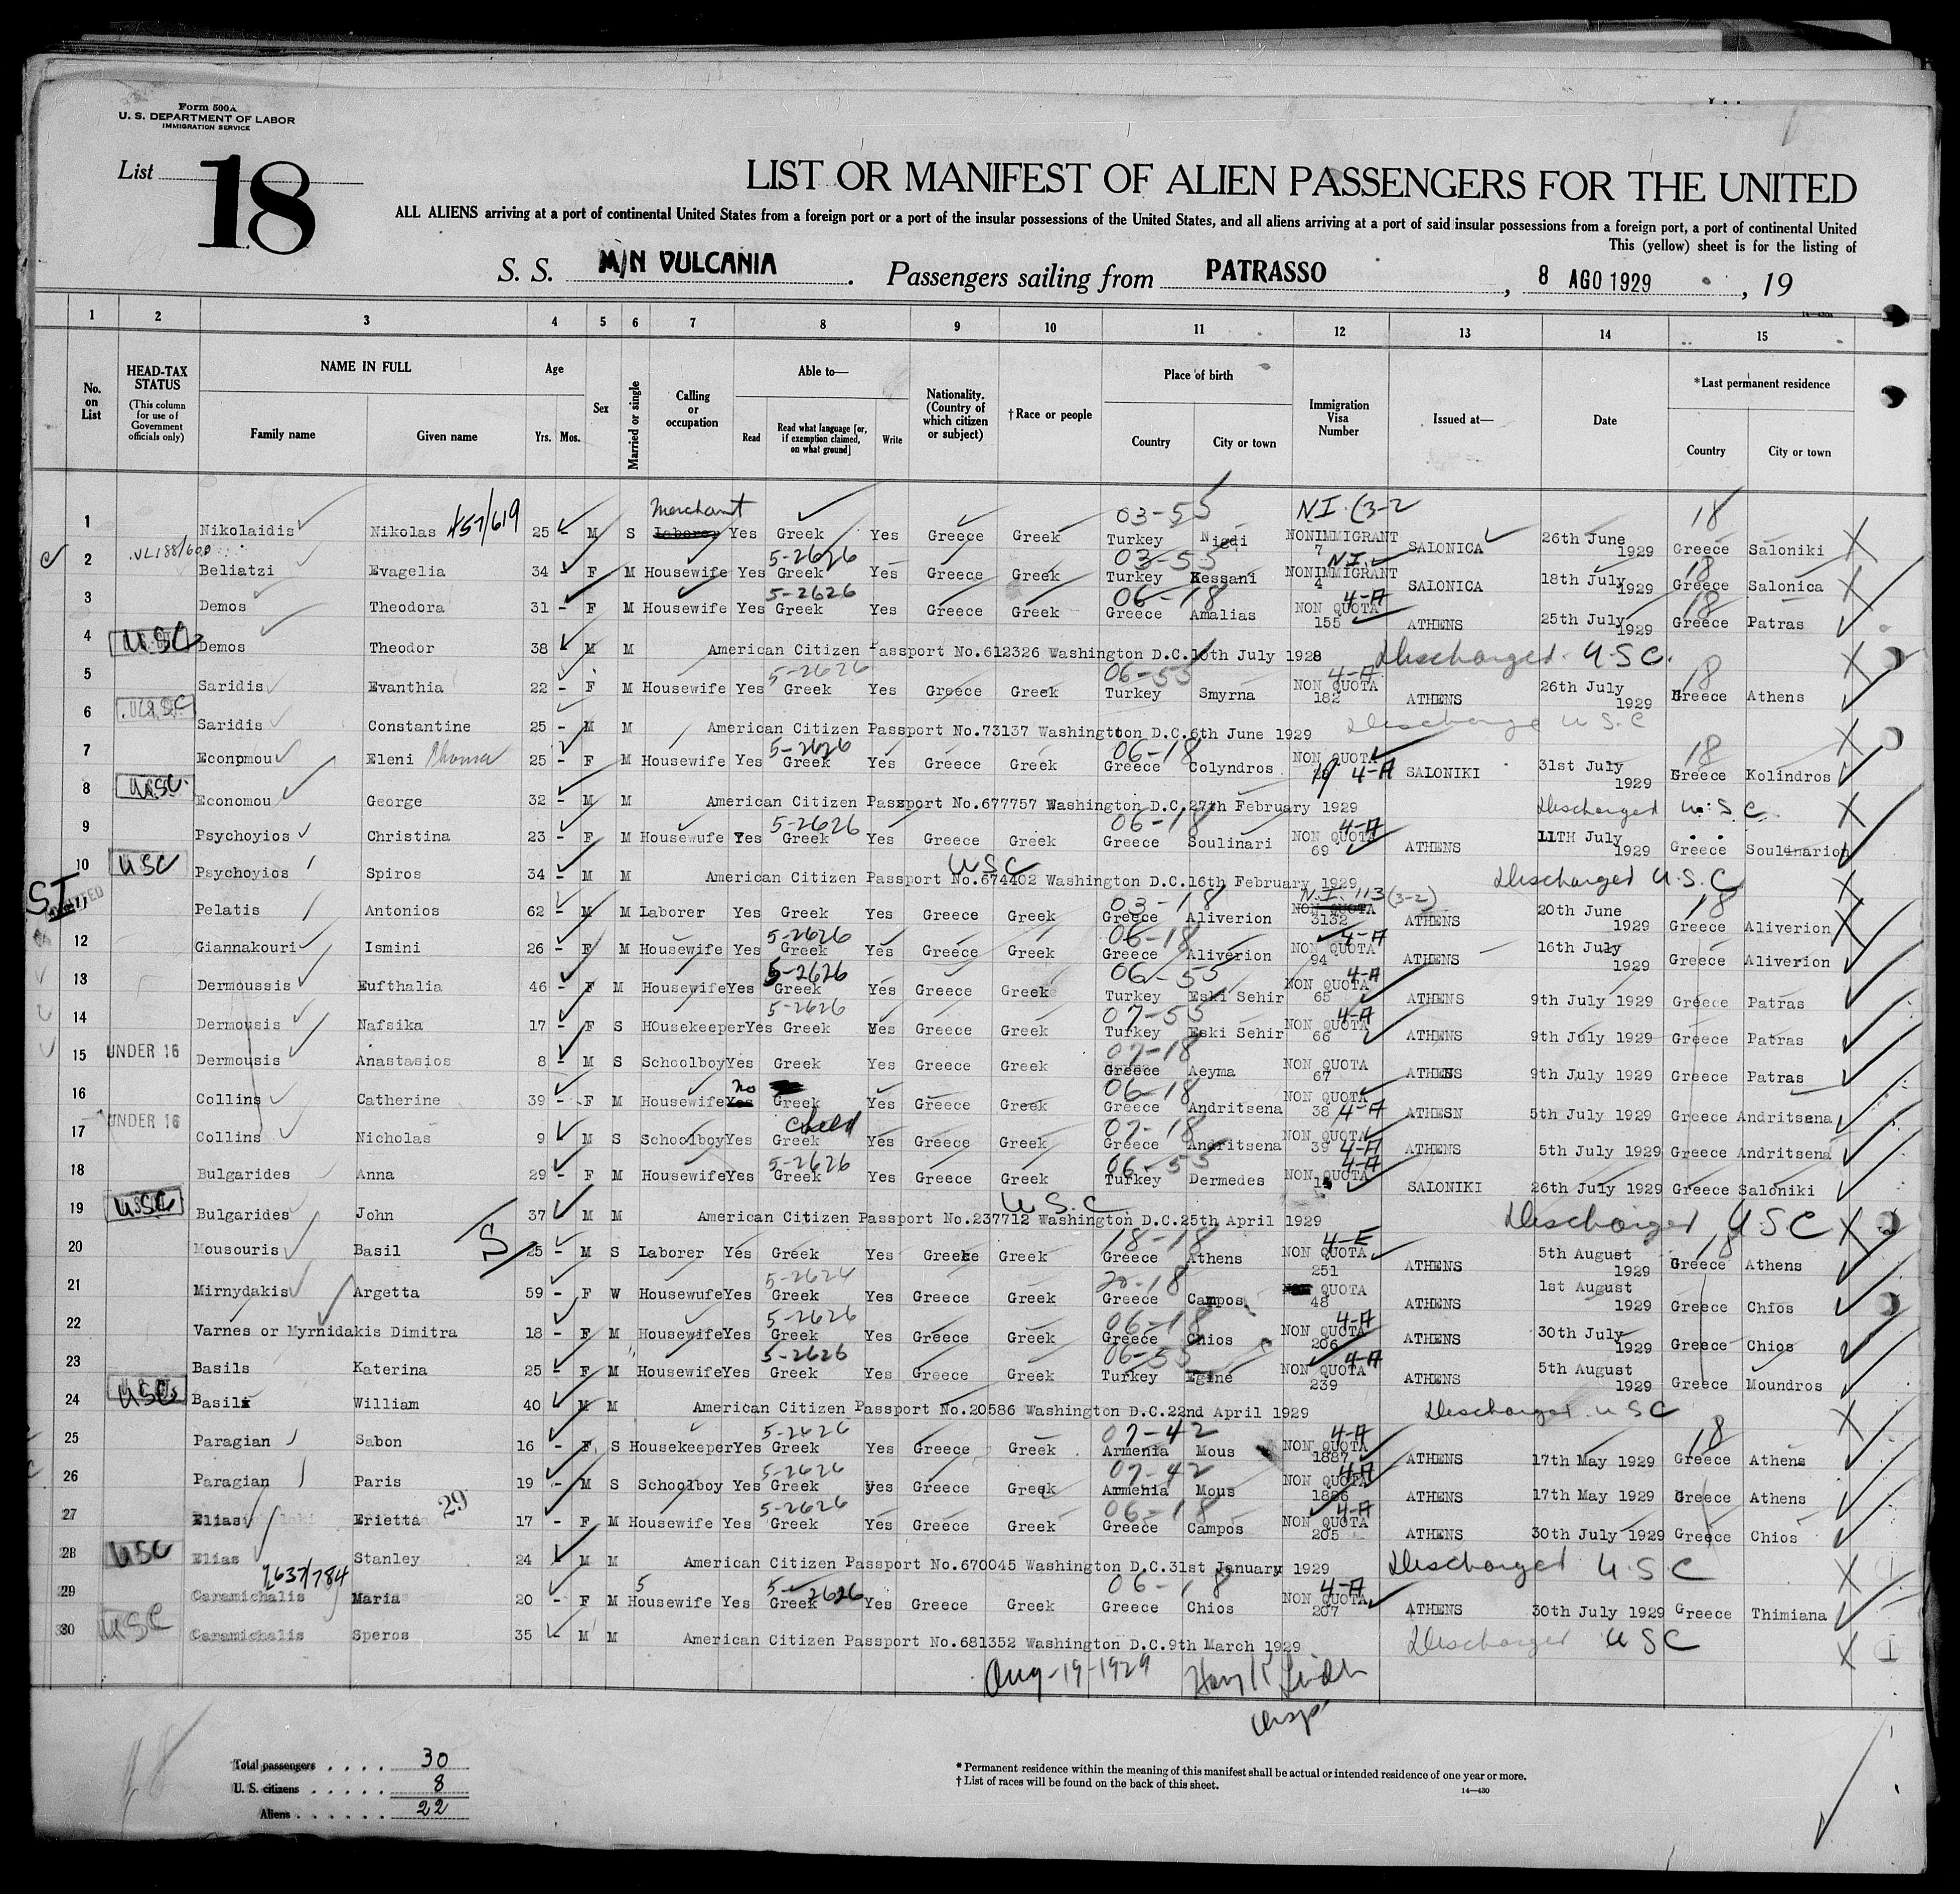 Form 500A
U. S. DEPARTMENT OF LABOR
IMMIGRATION SERVICE
List 18
LIST OR MANIFEST OF ALIEN PASSENGERS FOR THE UNITED
ALL ALIENS arriving at a port of continental United States from a foreign port or a port of the insular possessions of the United States, and all aliens arriving at a port of said insular possessions from a foreign port, a port of continental United
This (yellow) sheet is for the listing of
S. S. M/N VULCANIA. Passengers sailing from PATRASSO, 8 AGO 1929, 19
1 2 3 4 5 6 7 8 9 10 11 12 13 14 15
No. on List
HEAD-TAX STATUS (This column for use of Government officials only)
NAME IN FULL
Family name Given name
Age Yrs. Mos.
Sex
Married or single
Calling or occupation
Able to—
Read Read what language [or, if exemption claimed, on what ground] Write
Nationality. (Country of which citizen or subject)
†Race or people
Place of birth
Country City or town
Immigration Visa Number
Issued at—
Date
*Last permanent residence
Country City or town
1 Nikolaidis Nikolas 457/619 25 - M S Laborer Merchant Yes Greek Yes Greece Greek 03-55 Turkey Nigdi N.I. (3-2 NONIMMIGRANT 7 SALONICA 26th June 1929 18 Greece Saloniki
2 Beliatzi Evagelia 34 - F M Housewife Yes 5-2626 Greek Yes Greece Greek 03-55 Turkey Kessani N.I. NONIMMIGRANT 4 SALONICA 18th July 1929 18 Greece Salonica
3 Demos Theodora 31 - F M Housewife Yes 5-2626 Greek Yes Greece Greek 06-18 Greece Amalias 4-A NON QUOTA 155 ATHENS 25th July 1929 18 Greece Patras
4 USC Demos Theodor 38 - M M American Citizen Passport No.612326 Washington D.C.10th July 1928 Discharged U.S.C.
5 Saridis Evanthia 22 - F M Housewife Yes 5-2626 Greek Yes Greece Greek 06-55 Turkey Smyrna 4-A NON QUOTA 182 ATHENS 26th July 1929 18 Greece Athens
6 USC Saridis Constantine 25 - M M American Citizen Passport No.73137 Washington D.C.6th June 1929 Discharge U S C
7 Econpmou Eleni 25 - F M Housewife Yes 5-2626 Greek Yes Greece Greek 06-18 Greece Colyndros NON QUOTA 19 4-A SALONIKI 31st July 1929 18 Greece Kolindros
8 USC Economou George 32 - M M American Citizen Passport No.677757 Washington D.C.27th February 1929 Discharged U.S C
9 Psychoyios Christina 23 - F M Housewufe Yes 5-2626 Greek Yes Greece Greek 06-18 Greece Soulinari 4-A NON QUOTA 69 ATHENS 11TH July 1929 Greece Soulinarion
10 USC Psychoyios Spiros 34 - M M American Citizen Passport No.674402 Washington D.C.16th February 1929 USC Discharged U.S.C
SI 11 Pelatis Antonios 62 - M M Laborer Yes Greek Yes Greece Greek 03-18 Greece Aliverion N.I. 113 (3-2) NON QUOTA 3132 ATHENS 20th June 1929 18 Greece Aliverion
12 Giannakouri Ismini 26 - F M Housewife Yes 5-2626 Greek Yes Greece Greek 06-18 Greece Aliverion 4-A NON QUOTA 94 ATHENS 16th July 1929 Greece Aliverion
13 Dermoussis Eufthalia 46 - F M Housewife Yes 5-2626 Greek Yes Greece Greek 06-55 Turkey Eski Sehir 4-A NON QUOTA 65 ATHENS 9th July 1929 Greece Patras
14 Dermousis Nafsika 17 - F S HOusekeeper Yes 5-2626 Greek Yes Greece Greek 07-55 Turkey Eski Sehir 4-A NON QUOTA 66 ATHENS 9th July 1929 Greece Patras
15 UNDER 16 Dermousis Anastasios 8 - M S Schoolboy Yes Greek Yes Greece Greek 07-18 Greece Aeyma NON QUOTA 67 ATHENS 9th July 1929 Greece Patras
16 Collins Catherine 39 - F M Housewife Yes no Greek Yes Greece Greek 06-18 Greece Andritsena NON QUOTA 38 4-A ATHESN 5th July 1929 Greece Andritsena
17 UNDER 16 Collins Nicholas 9 - M S Schoolboy Yes child Greek Yes Greece Greek 07-18 Greece Andritsena NON QUOTA 39 4-A ATHENS 5th July 1929 Greece Andritsena
18 Bulgarides Anna 29 - F M Housewife Yes 5-2626 Greek Yes Greece Greek 06-55 Turkey Dermedes 4-A NON QUOTA SALONIKI 26th July 1929 Greece Saloniki
19 USC Bulgarides John 37 M M American Citizen Passport No.237712 Washington D.C.25th April 1929 U.S.C. Discharged U S C
20 Mousouris Basil S 25 - M S Laborer Yes Greek Yes Greece Greek 18-18 Greece Athens 4-E NON QUOTA 251 ATHENS 5th August 1929 18 Greece Athens
21 Mirnydakis Argetta 59 - F W Housewufe Yes 5-2626 Greek Yes Greece Greek 20-18 Greece Campos QUOTA 48 ATHENS 1st August 1929 Greece Chios
22 Varnes or Myrnidakis Dimitra 18 - F M Housewife Yes 5-2626 Greek Yes Greece Greek 06-18 Greece Chios 4-A NON QUOTA 206 ATHENS 30th July 1929 Greece Chios
23 Basils Katerina 25 - F M Housewife Yes 5-2626 Greek Yes Greece Greek 06-55 Turkey Egine 4-A NON QUOTA 239 ATHENS 5th August 1929 Greece Moundros
24 USC Basils William 40 - M M American Citizen Passport No.20586 Washington D.C.22nd April 1929 Discharged U S C
25 Paragian Sabon 16 - F S Housekeeper Yes 5-2626 Greek Yes Greece Greek 07-42 Armenia Mous 4-A NON QUOTA 1887 ATHENS 17th May 1929 18 Greece Athens
26 Paragian Paris 19 - M S Schoolboy Yes 5-2626 Greek yes Greece Greek 07-42 Armenia Mous 4-A NON QUOTA 1886 ATHENS 17th May 1929 Greece Athens
27 Elias Erietta 29 17 - F M Housewife Yes 5-2626 Greek Yes Greece Greek 06-18 Greece Campos 4-A NON QUOTA 205 ATHENS 30th July 1929 Greece Chios
28 USC Elias Stanley 24 M M American Citizen Passport No.670045 Washington D.C.31st January 1929 Discharged U.S.C
29 Caramichalis 2637/784 Maria 20 - F M 5 Housewife Yes 5-2626 Greek Yes Greece Greek 06-18 Greece Chios 4-A NON QUOTA 207 ATHENS 30th July 1929 Greece Thimiana
30 USC Caramichalis Speros 35 - M M American Citizen Passport No.681352 Washington D.C.9th March 1929 Discharged U S C
Aug-19-1929
Insp
Total passengers 30
U. S. citizens 8
Aliens 22
* Permanent residence within the meaning of this manifest shall be actual or intended residence of one year or more.
† List of races will be found on the back of this sheet.
14—430